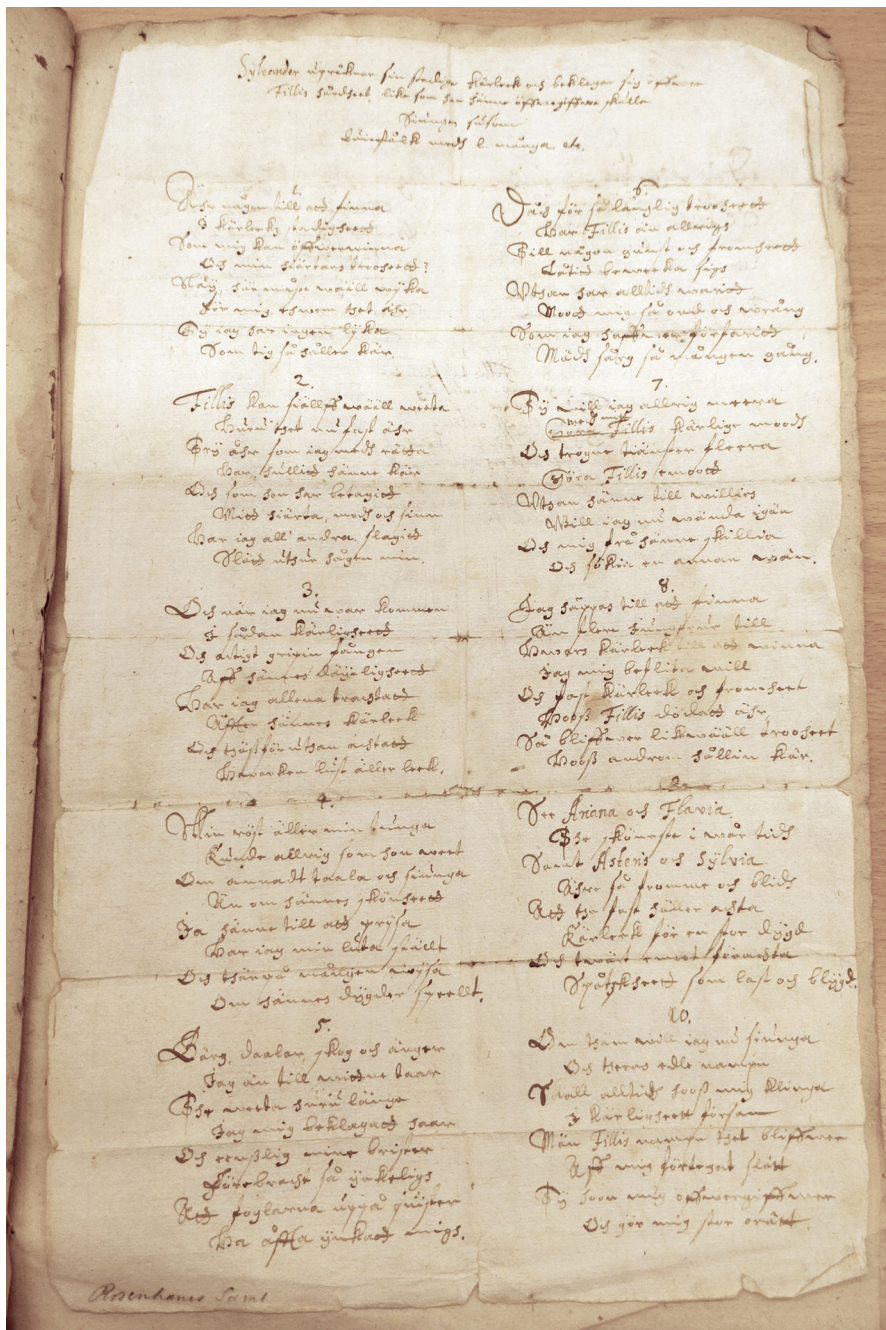 Sylvander upräknar sin stadige kärleek och beklagar sig öffwer
Fillis hårdheet, lika som han hänne öffwergiffwa skulle
Siunges såsom
Quinfålk medh l. många, etc.
1.
Ähr någon till att finna
I kärleekz stadigheett
Som mig kan öffwerwinna
Och min hiärtans trooheett?
Näy, här måste wääll wyka
För mig ehwem thet ähr
Ty iag har ingen lyka
Som tig så håller kär.
2.
Fillis kan siällff wääll weta
Huru thet nu fast ähr
Try åhr som iag medh rätta
Har hullitt hänne kär
Och som hon har betagitt
Mitt hiärta, modh och sinn
Har iag all andra slagitt
Slätt uthur hågen min.
3.
Och när iag nu war kommen
I sådan kärligheett
Och artigt gripin fången
Aff hännes däyeligheett
Har iag allena trachtatt
Äffter hännes kärleek
Och thässföruthan achtatt
Hwarken lust äller leek.
4.
Min röst äller min tunga
Kunde allrig som hon weet
Om annadt taala och siunga
Än om hännes skönheett
Ja hänne till att prysa
Har iag min luta ställt
Och thärpå mången wysa
Om hännes dygder speellt.
5.
Bärg, daalar, skog och änger
Jag än till wittne taar
The weeta huru länge
Jag mig beklagatt haar
Och eenslig mine brister
Förebracht så ynkeligh
Att foglarna uppå quister
Ha åffta ynkatt migh.
6.
Däch för så långlig trooheett
Har Fillis än allrigh
Till någon gunst och fromheett
Låtitt beweeka sigh
Uthan har alltidh waritt
Moott mig så ond och wrång
Som iag haffwer förfaritt
Mädh sårg så mången gång.
7.
Ty will iag allrig meera
wedh mitt
Göra Fillis kärlige moodh
Och trogne tiänster fleera
Göra Fillis emoott
Uthan hänne till willies
Will iag nu wända igän
Och mig från hänne skillia
Och sökia en annan wän.
8.
Jag håppas till att finna
Än flere iungfrur till
Hwars kärleek till att winna
Jag mig beflita will
Och fast kärleek och fromheet
Hooss Fillis dödatt ähr
Så bliffwer likwääll trooheet
Hooss androm hållin kär.
9.
See Ariana och Flavia
The skönaste i wår tidh
Samt Asteris och Sylvia
Ähre så fromme och blidh
Att the fast håller achta
Kärleek för en stor dygd
Och twärt emot förachta
Spåtzkheett som last och blygd.
10.
Om tham will iag nu siunga
Och theras edle nampn
Skall alltidh hooss mig klinga
I kärligheett försam
Män Fillis nampn thet bliffwer
Aff mig förtegat slätt
Ty hoon mig offwergiffwer
Och gör mig stor orätt.
Rosenhanes Saml